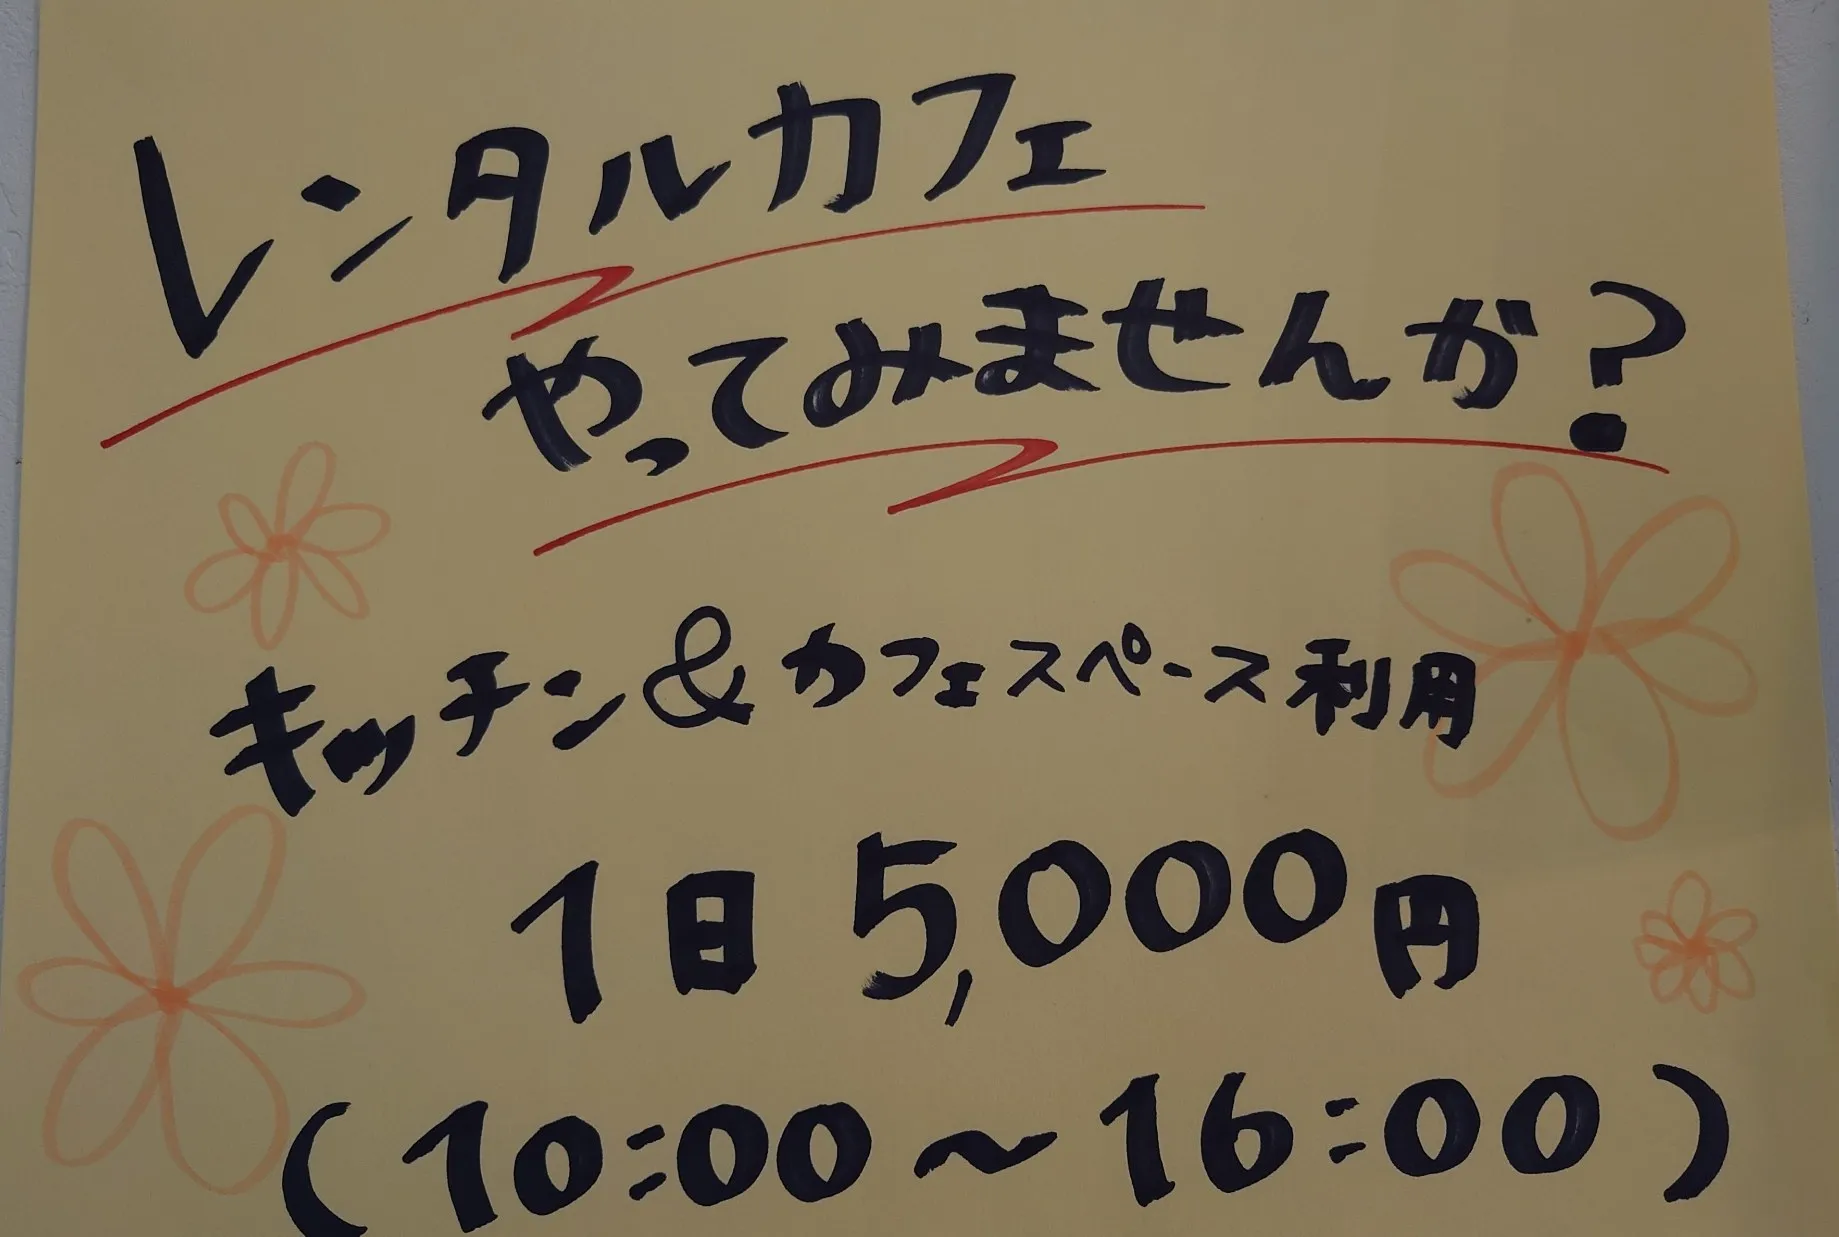 レンタルカフェ
やってみませんか？
キッチン&カフェスペース利用
1日 5,000円
(10:00～16:00)